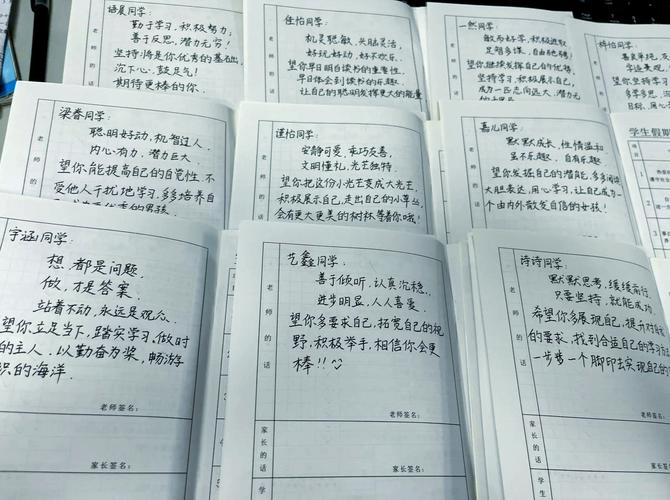 语晨同学：
勤于学习，积极努力；
善于反思，潜力无穷！
坚持将是你优秀的基石，
沉下心，鼓足气！
期待更棒的你.
老师的话
佳怡同学：
机灵聪敏，头脑灵活，
好玩好动，好不欢乐.
望你早日明白读书的重要性，
早日体会到读书的乐趣，
让自己的聪明发挥更大的能量
老师的话
一然同学：
敏而好学，积极进取
足智多谋，自由驰骋！
望你继续发挥自己的优势，
坚持学习，积极展示自己，
成为一匹志向远大、潜力无
老师的话
梓怡同学：
望你坚持学习
老师的话
梁睿同学：
聪明好动，机智过人，
内心有力，潜力巨大.
望你能提高自己的自觉性，不
受他人干扰地学习，多多培养自
老师的话
谨怡同学：
安静可爱，乖巧友善，
文明懂礼，光芒独特
望你把这份小光芒变成大光芒，
积极展示自己，走出自己的小草丛，
会有更大更美的树林等着你哦！
老师的话
嘉儿同学：
默默成长，性情温和
虽不乐趣，自有乐趣
望你发掘自己的潜能，多多阅读
大胆表达，用心学习，让自己成为一
个由内外散发自信的女孩！
老师的话
学生假期
宇涵同学：
想，都是问题，
做，才是答案.
站着不动，永远是观众.
望你立足当下，踏实学习，做时
的主人，以勤奋为桨，畅游
识的海洋.
老师签名：
家长签名：
艺鑫同学：
善于倾听，认真沉稳.
进步明显，人人喜爱.
望你多要求自己，拓宽自己的视
野，积极举手，相信你会更
棒!!
老师的话
老师签名：
家长的话
家长签名：
学
诗诗同学：
默默思考，缓缓前行.
只要坚持，就能成功.
希望你多展现自己，提升对自
的要求，找到合适自己的学习
一步步一个脚印去实现自己的
老师的话
老师签名：
家长的话
家长签名：
学